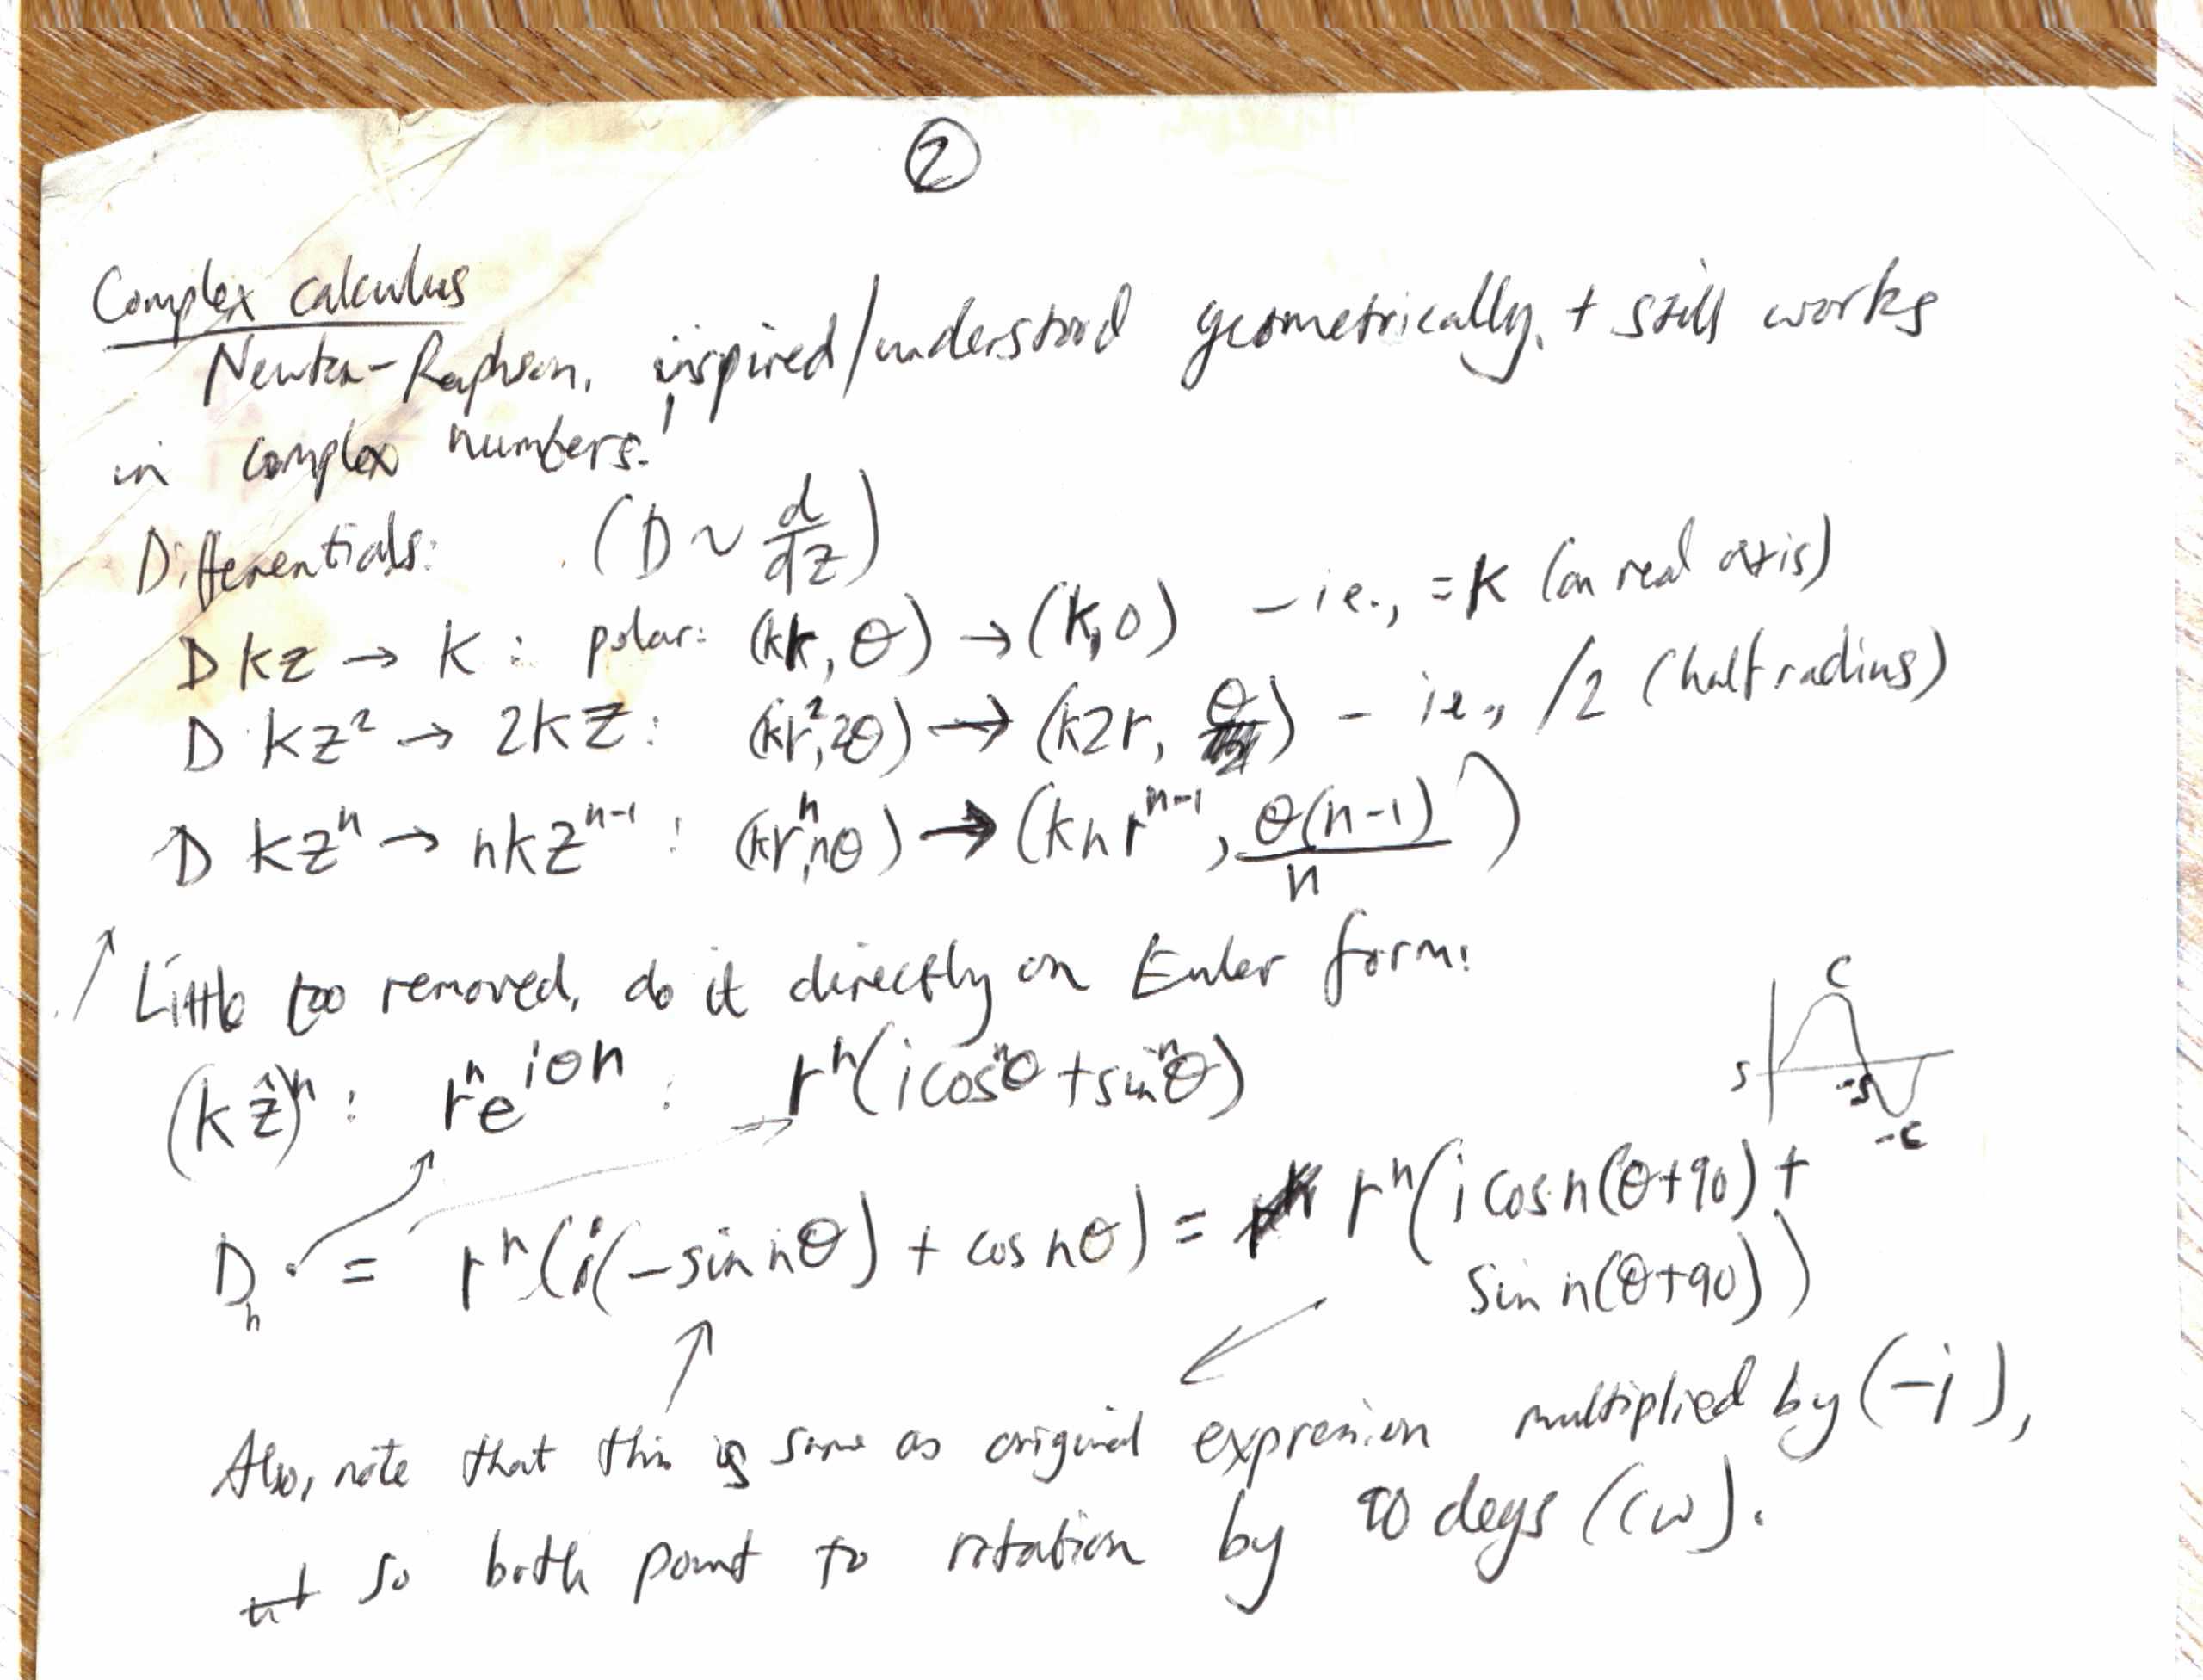 ②
Complex calculus
Newton-Raphson, inspired/understood geometrically, + still works
in complex numbers!
Differentials: (D ~ d/dz)
D kz → k : polar: (kr, θ) → (k, 0) – ie., = k (on real axis)
D kz² → 2kz : (kr², 2θ) → (k2r, θ) – ie., /2 (half radius)
D kzⁿ → nkzⁿ⁻¹ : (krⁿ, nθ) → (knrⁿ⁻¹, θ(n-1)/n)
Little too removed, do it directly on Euler form:
(kẑ)ⁿ : rⁿe^(iθn) : rⁿ(i cos nθ + sin nθ)
C
S
-S
-C
Dₙ = rⁿ(i(-sin nθ) + cos nθ) = rⁿ(i cos n(θ+90) +
sin n(θ+90))
Also, note that this is same as original expression multiplied by (-i),
so both point to rotation by 90 degs (cw).